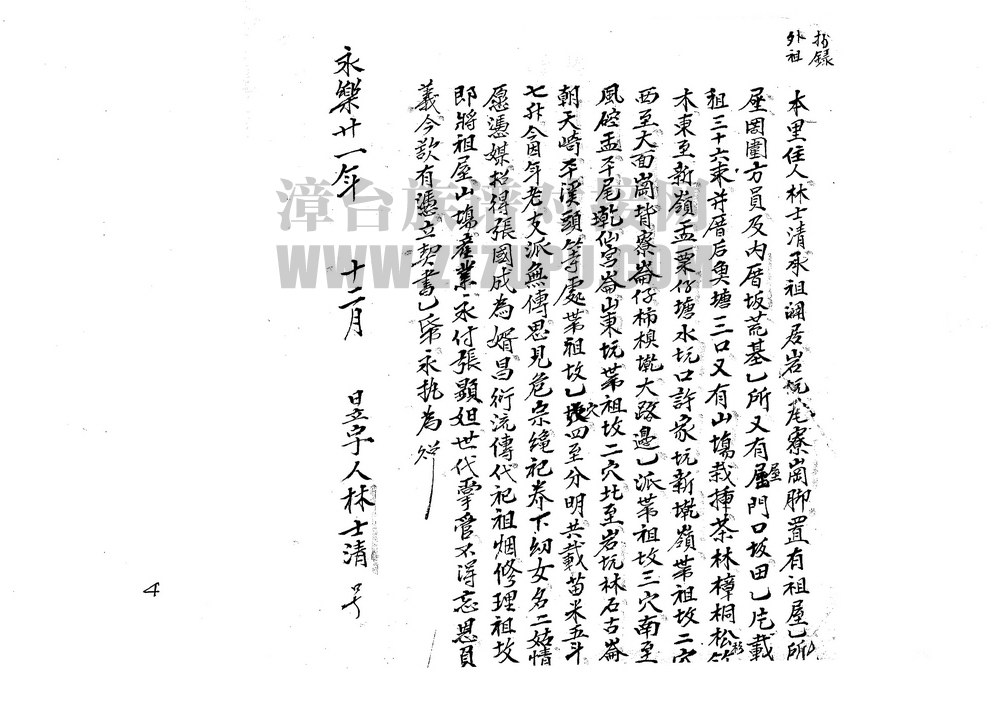 抄録
外祖
本里住人林士清承祖淵居岩坑尾寮崗脚置有祖屋乚所
屋囡圍方員及内厝坂荒基乚所又有屋門口坂田乚片載
租三十六束并厝后魚塘三口又有山塲栽揷茶林樟桐松竹杉
木東至新嶺盂粟仔塘水坑口許家坑新墘嶺塟祖坟二穴
西至大面崗背寮崙仔柿模墘大路邊乚派塟祖坟三穴南至
風硿盂平尾乾仙宮崙山東坑塟祖坟二穴北至岩坑林石古崙
朝天崎平溪頭等處塟祖坟乚穴四至分明共載苗米五斗
七升今因年老支派無傳思見危宗绝祀养下幼女名二姑情
愿憑媒招得張國成為婿昌衍流傳代祀祖烟修理祖坟
即將祖屋山塲產業永付張顕妲世代掌管不得忘恩負
義今欲有憑立契書乚帋永执為炤
永樂廿一年 十二月 日立字人林士清 号
漳台族谱对接网
WWW.ZTZUPU.COM
4